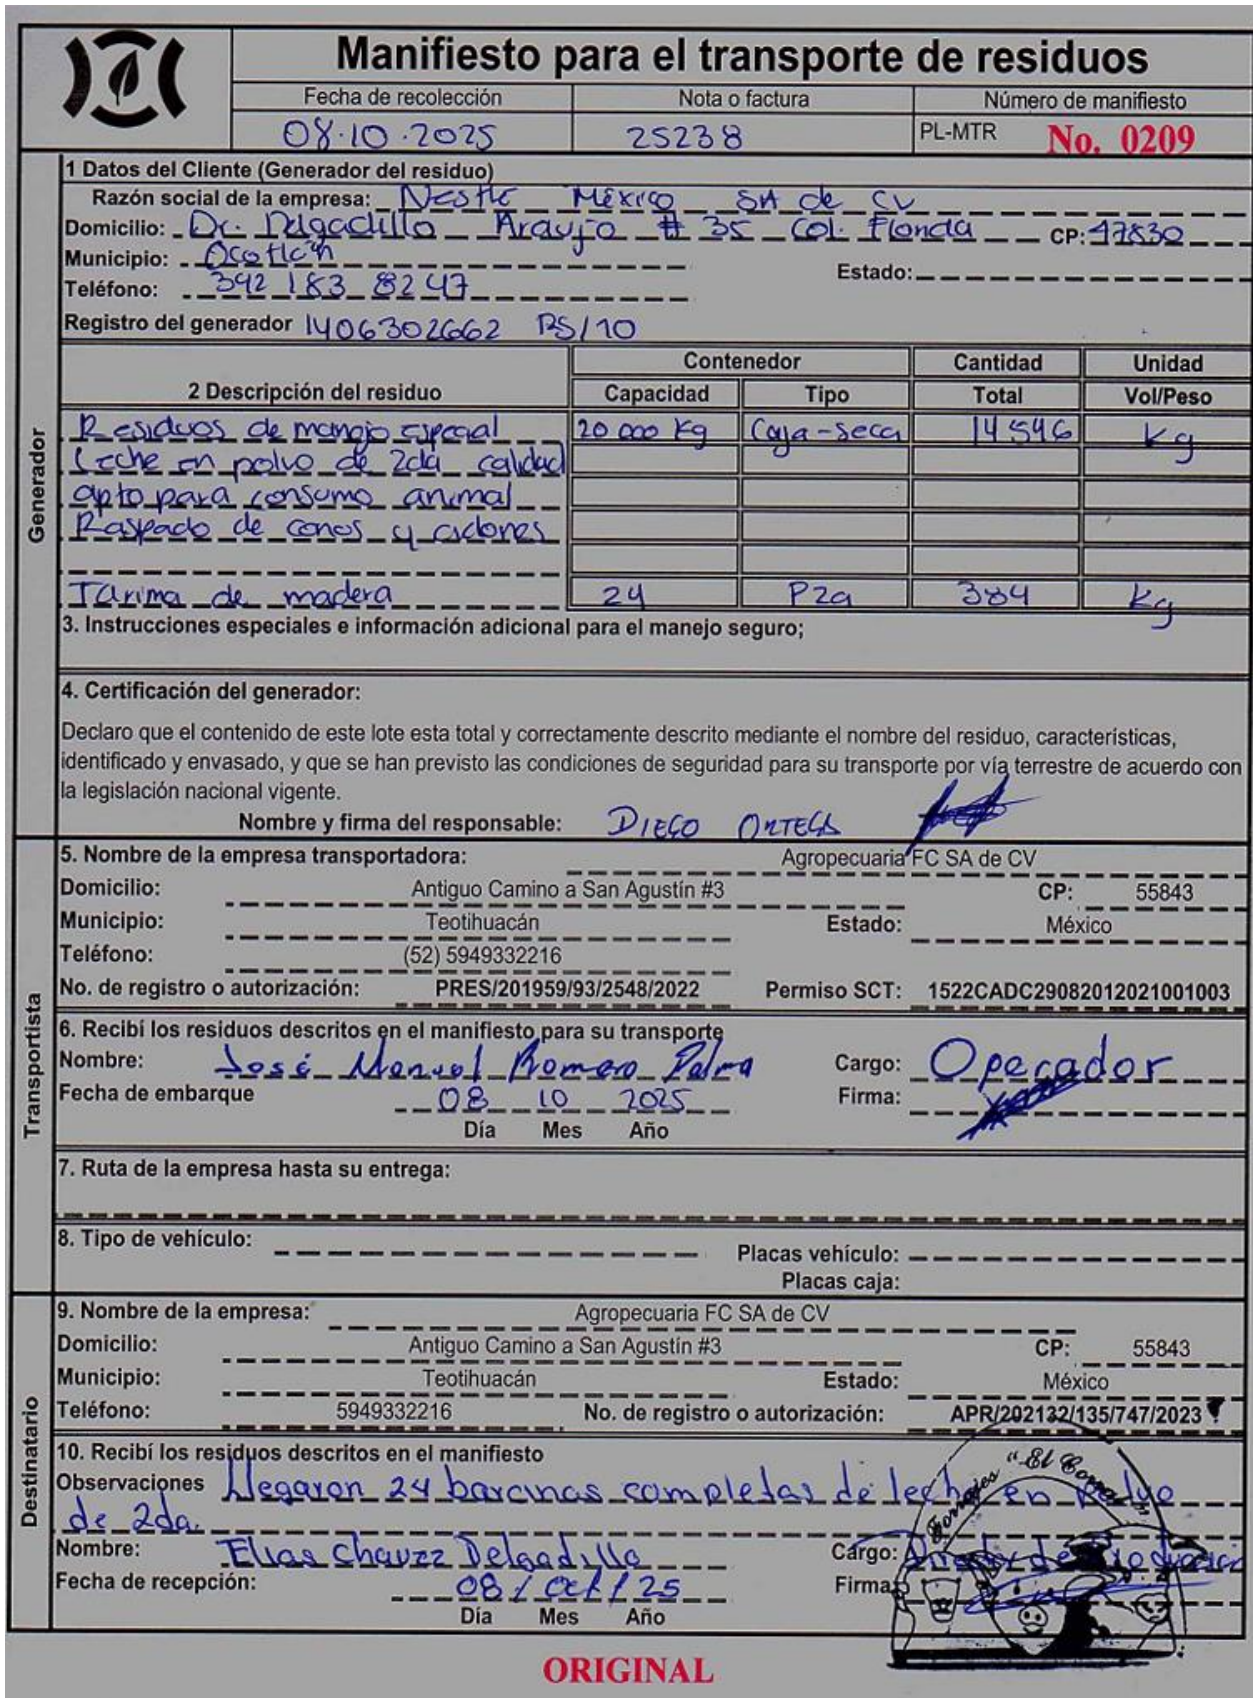 Manifiesto para el transporte de residuos
Fecha de recolección Nota o factura Número de manifiesto
08·10·2025 25238 PL-MTR No. 0209
1 Datos del Cliente (Generador del residuo)
Razón social de la empresa: Nestle México SA de CV
Domicilio: Dr. Delgadillo Araujo # 35 Col. Florida CP: 47830
Municipio: Ocotlán
Estado:
Teléfono: 392 183 8247
Registro del generador 1406302662 RS/10
Generador
Contenedor Cantidad Unidad
2 Descripción del residuo Capacidad Tipo Total Vol/Peso
Residuos de manejo especial 20 000 Kg Caja-seca 14 546 Kg
Leche en polvo de 2da calidad
apto para consumo animal
Raspado de conos y ciclones
Tarima de madera 24 Pza 384 Kg
3. Instrucciones especiales e información adicional para el manejo seguro;
4. Certificación del generador:
Declaro que el contenido de este lote esta total y correctamente descrito mediante el nombre del residuo, características,
identificado y envasado, y que se han previsto las condiciones de seguridad para su transporte por vía terrestre de acuerdo con
la legislación nacional vigente.
Nombre y firma del responsable: DIEGO ORTEGA
Transportista
5. Nombre de la empresa transportadora: Agropecuaria FC SA de CV
Domicilio: Antiguo Camino a San Agustín #3 CP: 55843
Municipio: Teotihuacán Estado: México
Teléfono: (52) 5949332216
No. de registro o autorización: PRES/201959/93/2548/2022 Permiso SCT: 1522CADC29082012021001003
6. Recibí los residuos descritos en el manifiesto para su transporte
Nombre: José Manuel Romero Palma Cargo: Operador
Fecha de embarque 08 10 2025 Firma:
Día Mes Año
7. Ruta de la empresa hasta su entrega:
8. Tipo de vehículo: Placas vehículo:
Placas caja:
Destinatario
9. Nombre de la empresa: Agropecuaria FC SA de CV
Domicilio: Antiguo Camino a San Agustín #3 CP: 55843
Municipio: Teotihuacán Estado: México
Teléfono: 5949332216 No. de registro o autorización: APR/202132/135/747/2023
10. Recibí los residuos descritos en el manifiesto
Observaciones Llegaron 24 barcinas completas de leche en polvo
de 2da.
Forrajes "El Corral"
Nombre: Elias Chavez Delgadillo Cargo: de Producción
Fecha de recepción: 08 / Oct / 25 Firma:
Día Mes Año
ORIGINAL